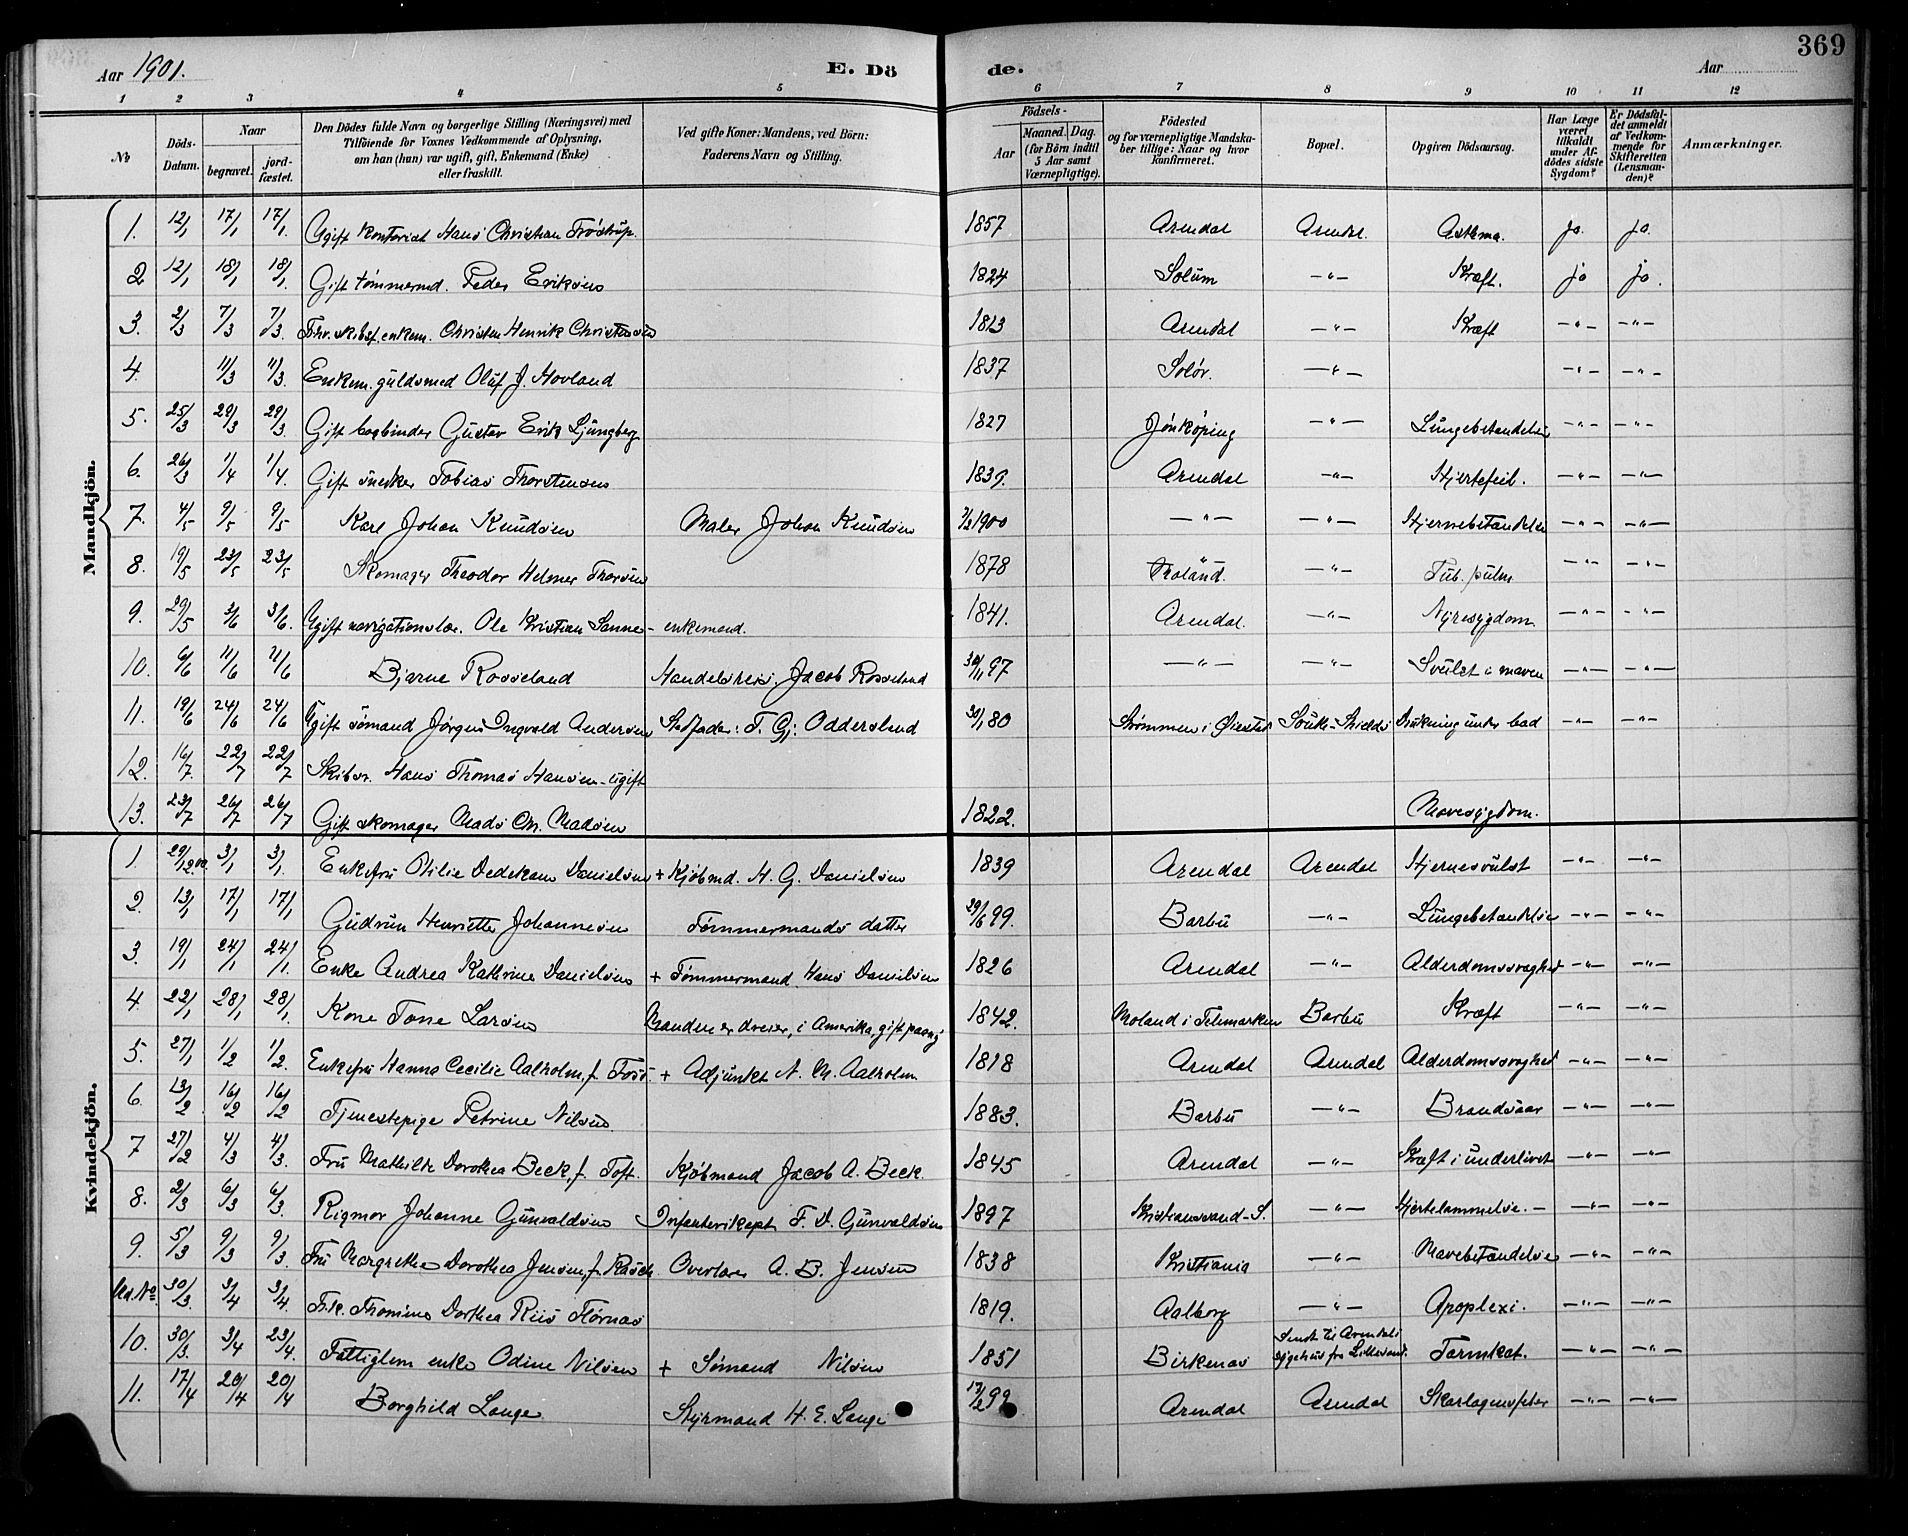 369
Aar 1901. E. Dö de. Aar
1 2 3 4 5 6 7 8 9 10 11 12
No Döds-Datum. Naar begravet. jordfæstet. Den Dödes fulde Navn og borgerlige Stilling (Næringsvei) med Tilföiende for Voxnes Vedkommende af Oplysning, om han (hun) var ugift, gift, Enkemand (Enke) eller fraskilt. Ved gifte Koner: Mandens, ved Börn: Faderens Navn og Stilling. Födsels- Aar Maaned. Dag. (for Börn indtil 5 Aar samt Værnepligtige). Födested og for værnepligtige Mandskaber tillige: Naar og hvor konfirmeret. Bopæl. Opgiven Dödsaarsag. Har Læge været tilkaldt under Afdödes sidste Sygdom? Er Dödsfaldet anmeldt af Vedkommende for Skifteretten (Lensmanden)? Anmærkninger.
Mandkjön.
1. 12/1 17/1 17/1. Ugift kontorist Hans Christian Trøstrup. 1857 Arendal Arendal. Asthma. ja. ja.
2 12/1 18/1 18/1. Gift tømmermd. Peder Eriksen 1824 Solum -"- Kræft. ja ja.
3. 2/3 7/3 7/3. Fhv. skibsf. enkem. Christen Henrik Christensen 1813 Arendal -"- Kræft -"- -"-
4. 11/3 11/3. Enkem. guldsmed Oluf J. Hovland 1837 Solør. -"- -"- -"-
5. 25/3 29/3 29/3. Gift bogbinder Gustav Erik Ljungberg 1827 Jönköping -"- Lungebetændelse -"- -"-
6. 26/3 1/4 1/4. Gift snedker Tobias Thorstensen 1839. Arendal -"- Hjertefeil. -"- -"-
7. 4/5 9/5 9/5 Karl Johan Knudsen Maler Johan Knudsen 1900 -"- -"- Hjernebetændelse -"- -"-
8. 19/5 23/5 23/5 Skomager Theodor Helmer Thorsen 1878 -"- Tub. pulm -"- -"-
9. 29/5 3/6 3/6. Ugift navigationslær. Ole Kristian Sanne - enkemand. 1841. Arendal. -"- Nyresygdom -"- -"-
10. 6/6 11/6 11/6 Bjarne Rosseland Handelsreis. Jacob Rosseland 30/11 97 -"- -"- Svulst i maven -"- -"-
11. 19/6 24/6 24/6 Ugift sømand Jørgen Ingvald Andersen Stedfader: T. Gj. Oddersland 30/1 80 Strømmen i Øiestad South-Shields Drukning under bad -"- -"-
12. 16/7 22/7 22/7 Skibsr. Hans Thomas Hansen - ugift
13. 23/7 26/7 26/7 Gift skomager Mads Chr. Madsen 1822. Mavesygdom.
Kvindekjön.
1. 29/12 00. 3/1 3/1. Enkefru Otilie Dedekam Danielsen + Kjøbmd. H. G. Danielsen 1839 Arendal Arendal Hjernesvulst -"- -"-
2. 13/1 17/1 17/1 Gudrun Henriette Johannesen Tømmermands datter 29/6 99. Barbu -"- Lungebetændelse -"- -"-
3. 19/1 24/1 24/1. Enke Andrea Kathrine Danielsen + Tømmermand Hans Danielsen 1826 Arendal -"- Alderdomssvaghed -"- -"-
4. 22/1 28/1 28/1. Kone Tone Larsen Manden er dreier, i Amerika, gift paany 1842. Moland i Telemarken Barbu Kræft -"- -"-
5. 27/1 1/2 1/2. Enkefru Hanna Cecilie Aalholm, f. Foss. + Adjunkt N. M. Aalholm. 1818 Arendal Arendal Alderdomssvaghed -"- -"-
6. 13/2 16/2 16/2 Tjenestepige Petrine Nilsen. 1883. Barbu -"- Brandsaar -"- -"-
7 27/2 4/3 4/3. Fru Mathilde Dorothea Beck, f. Toft. Kjøbmand Jacob A. Beck. 1845 Arendal -"- Kræft i underlivet -"- -"-
8. 2/3 6/3 6/3. Rigmor Johanne Gunvaldsen Infanterikapt. F. D. Gunvaldsen 1897 Kristianssand-S. -"- Hjertelammelse. -"- -"-
9. 5/3 9/3 9/3. Fru Margrethe Dorothea Jensen, f. Rasch. Overlærer A. B. Jensen 1838 Kristiania -"- Mavebetændelse -"- -"-
30/3. 3/4 3/4. Frk. Thomine Dorthea Riis 1819. Aalborg -"- Apoplexi. -"- -"-
10. 30/3. 3/4 23/4. Fattiglem enke Odine Nilsen + Sømand Nilsen 1851 Birkenæs Sendt til Arendals sygehus fra Lillesand. Tarmkat. -"- -"-
11. 17/4 20/4 20/4 Borghild Lange Styrmand H. E. Lange 17/2 99 Arendal Arendal Skarlagensfeber -"- -"-